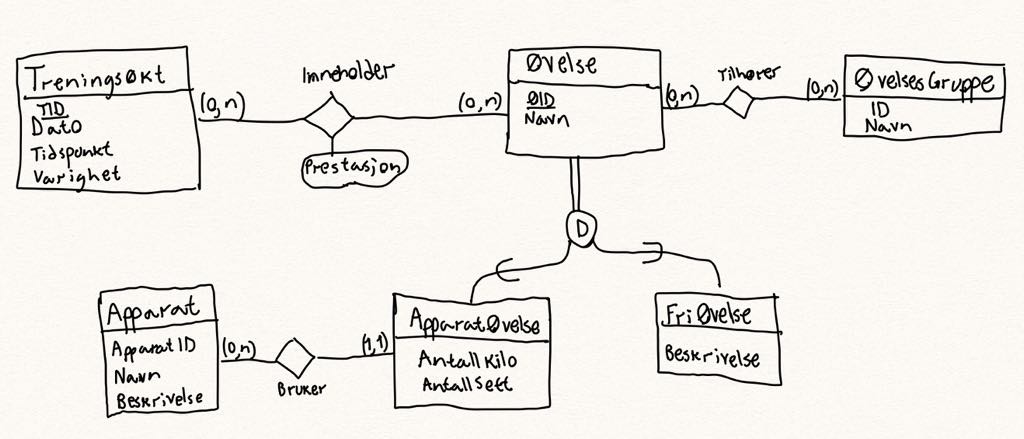 TreningsØkt
TID
Dato
Tidspunkt
Varighet
(0,n)
Inneholder
Prestasjon
(0,n)
Øvelse
ØID
Navn
(0,n)
Tilhører
(0,n)
ØvelsesGruppe
ID
Navn
D
Apparat
ApparatID
Navn
Beskrivelse
(0,n)
Bruker
(1,1)
ApparatØvelse
AntallKilo
AntallSett
FriØvelse
Beskrivelse